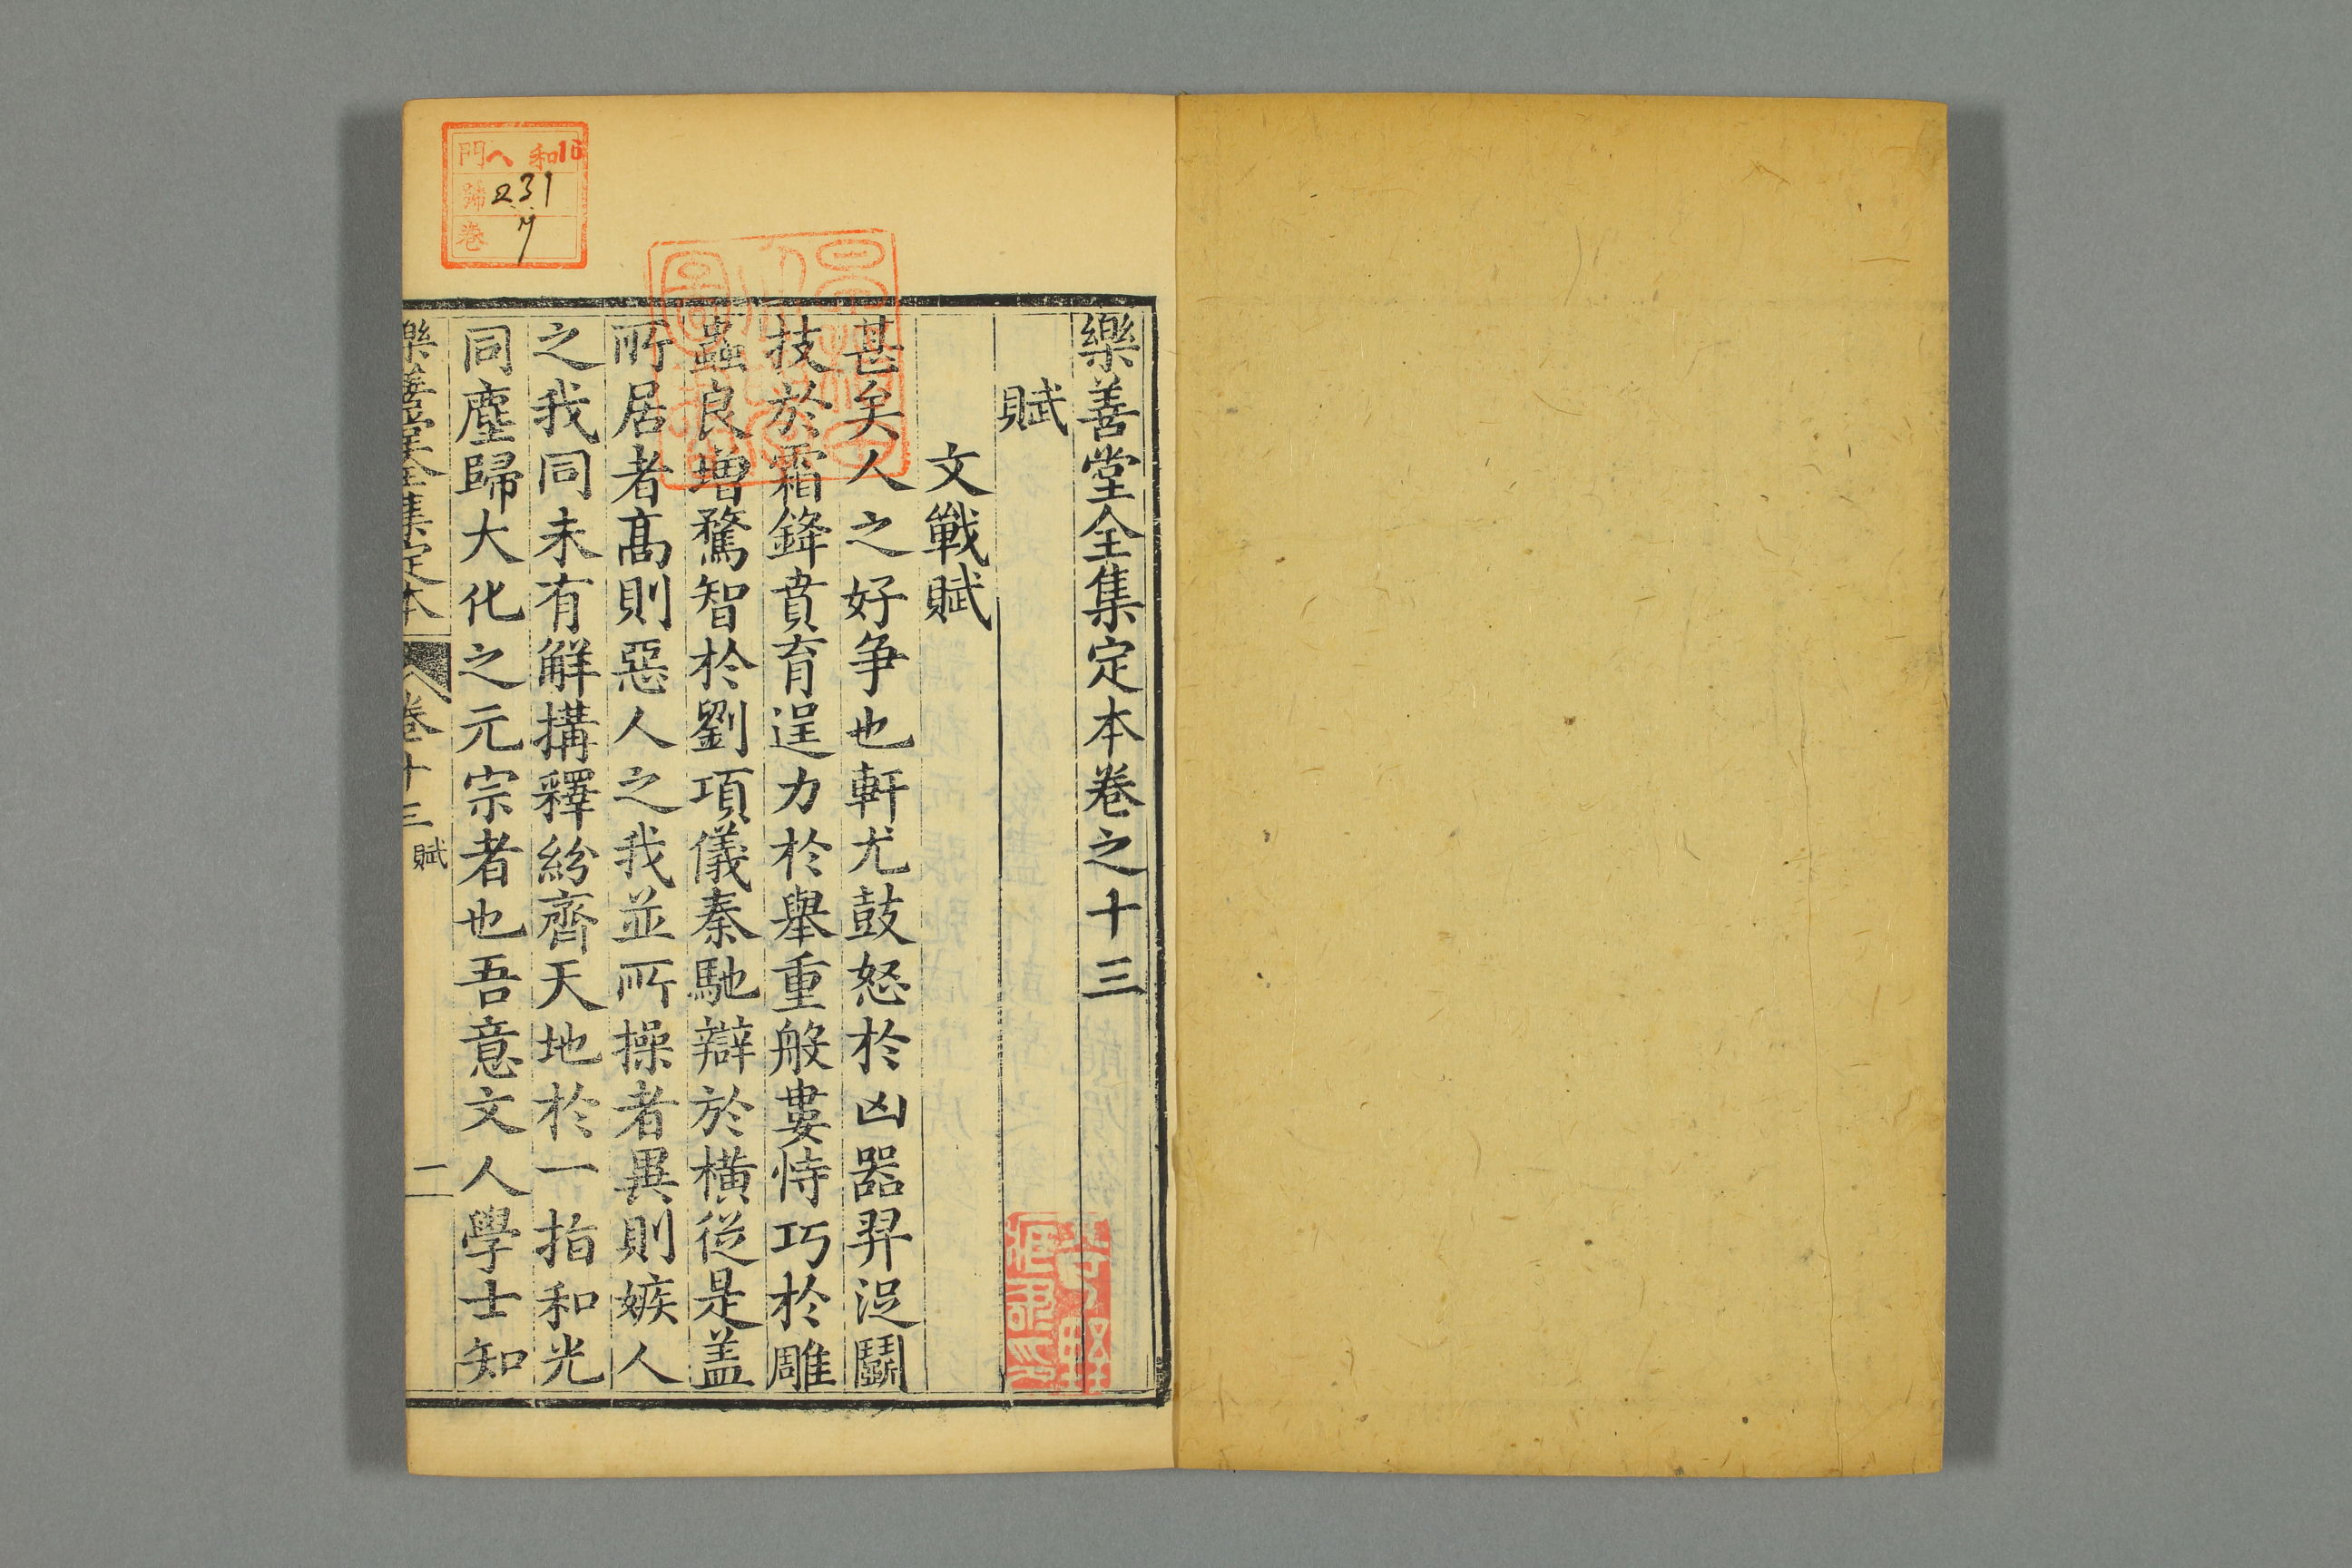 樂善堂全集定本卷之十三
賦
文戰賦
甚矣人之好爭也軒尤鼓怒於凶器羿浞鬬
技於霜鋒賁育逞力於舉重般婁恃巧於雕
蟲良增騖智於劉項儀秦馳辯於橫從是盖
所居者高則惡人之我並所操者異則嫉人
之我同未有解搆釋紛齊天地於一指和光
同塵歸大化之元宗者也吾意文人學士知
樂善堂全集定本 卷十三 賦 一
和 16
門 ヘ
號 231
卷 7